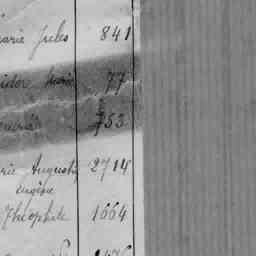 arie Jules 841
idor Marie 77
753
rie Augustin 2714
Eugène
Théophile 1664